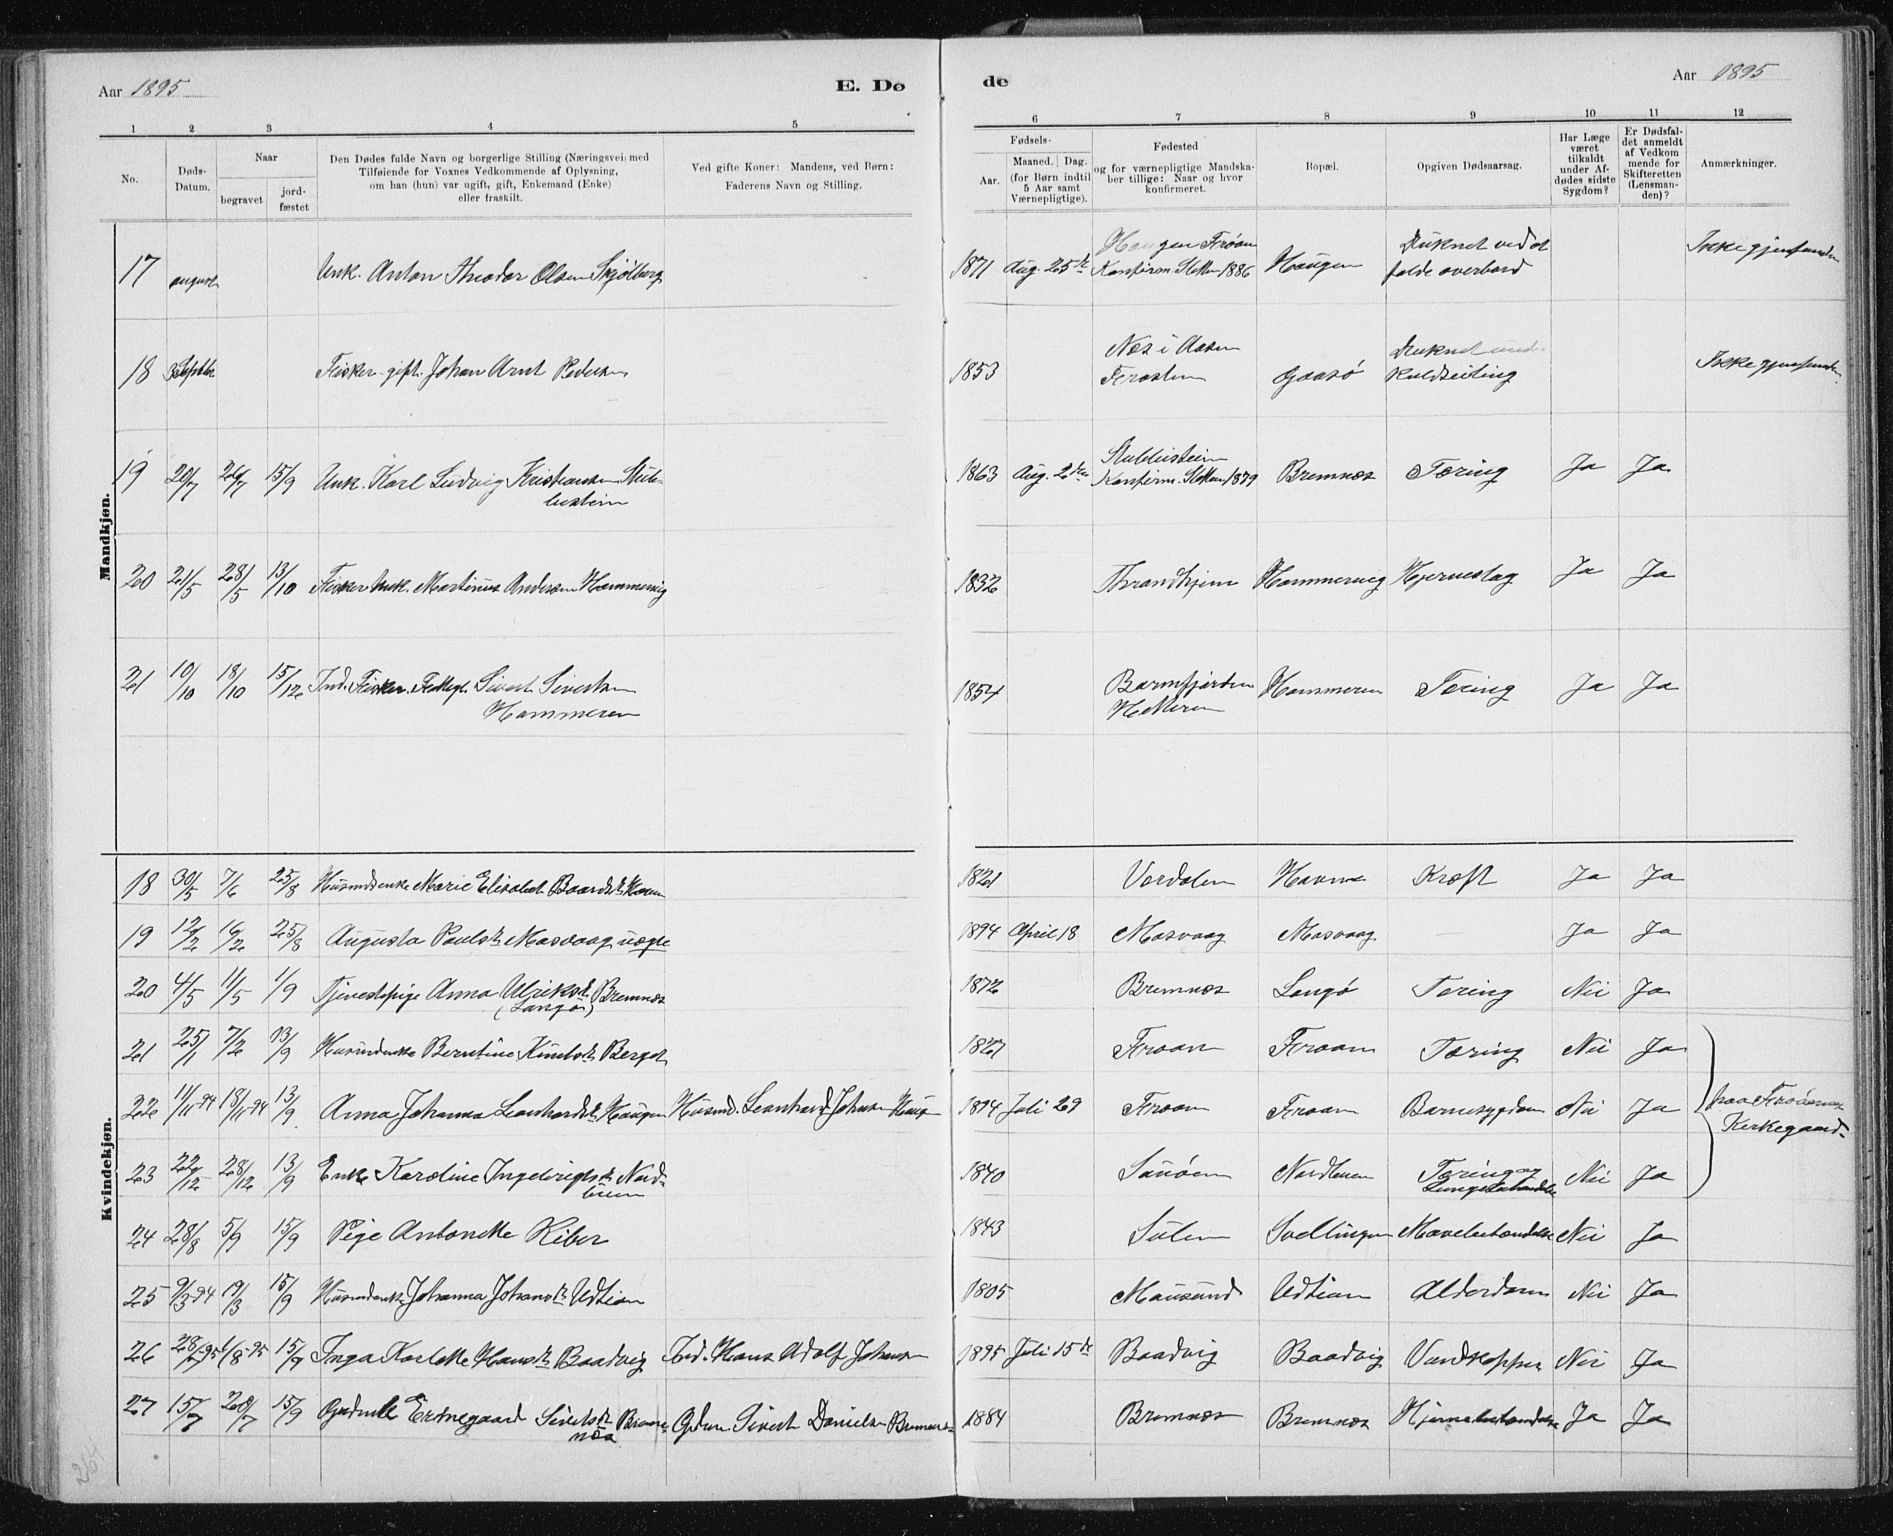 Aar 1895
E. Dø
de
Aar 1895
1 2 3 4 5
6 7 8 9 10 11 12
No.
Døds-
Datum.
Naar
begravet
jord-
fæstet
Den Dødes fulde Navn og borgerlige Stilling (Næringsvei) med
Tilføiende for Voxnes Vedkommende af Oplysning,
om han (hun) var ugift, gift, Enkemand (Enke)
eller fraskilt.
Ved gifte Koner: Mandens, ved Børn:
Faderens Navn og Stilling.
Fødsels-
Aar.
Maaned. Dag.
(for Børn indtil
5 Aar samt
Værnepligtige).
Fødested
og for værnepligtige Mandska-
ber tillige: Naar og hvor
konfirmeret.
Bopæl.
Opgiven Dødsaarsag.
Har Læge
været
tilkaldt
under Af-
dødes sidste
Sygdom?
Er Dødsfal-
det anmeldt
af Vedkom
mende for
Skifteretten
(Lensman-
den)?
Anmærkninger.
Mandkjøn.
17 august Unk. Anton Theodor Olsen Skjølberg 1871 Aug. 25de Haugen Frøan
Konfirm. 1886 Haugen Druknet ved at
falde overbord Ikke gjenfunden
18 Fisker gift. Johan Arnt Pedersen 1853 Næs i Aasen
Frosten Gaasø Druknet under
Kuldseiling Ikke gjenfunden
19 20/7 26/7 15/9 Unk. Karl Ludvig Kristiansen Stub-
bustein 1863 Aug. 2den Konfirm. 1879 Bremnæs Tæring Ja Ja
20 21/5 28/5 13/10 Fisker Unk. Martinus Andersen Hammervig 1832 Trondhjem Hammervig Hjerneslag Ja Ja
21 10/10 18/10 15/12 Ind. Fisker. Sivert Sivertsen
Hammeren 1854 Barmfjorden
Hammeren Tæring Ja Ja
Kvindekjøn.
18 30/5 7/6 25/8 Husmdsenke Marie Elisabet 1821 Værdalen Kræft Ja Ja
19 12/2 16/2 25/8 Augusta Paulsdtr Masvaag uægte 1894 April 18 Masvaag Masvaag — Ja Ja
20 4/5 11/5 1/9 Tjenestepige Anna Ulriksdtr Bremnæs
(Langø) 1872 Bremnæs Langø Tæring Nei Ja
21 25/1 7/2 13/9 Husmdenke Berntine Knudsdtr Berget 1821 Froan Froan Tæring Nei Ja
22 11/11-94 18/11-94 13/9 Anna Johanna Leonhardsdtr Haugen Husmd. Leonhard Johnsen Haugen 1894 Juli 29 Froan Froan Barnesygdom Nei Ja paa Froøernes
Kirkegaard.
23 22/12 28/12 13/9 Enke Karoline Ingebrigtsdtr Nord-
buen 1840 Sauøen Nordbuen Tæring og
Lungebetændelse Nei Ja
24 28/8 5/9 15/9 Pige Antonette Riber 1843 Sulen Svellingen Mavebetændelse Nei Ja
25 9/3 94 19/3 15/9 Husmdenke Johanna Johansdtr Udtian 1805 Mausund Udtian Alderdom Nei Ja
26 28/7-95 1/8-95 15/9 Inga Karlotte Hansdtr Baadvig Ind. Hans Adolf Johansen 1895 Juli 15de Baadvig Baadvig Vandkopper Nei Ja
27 15/7 20/7 15/9 Sivertsdtr Brem-
næs Gdm. Sivert Danielsen Bremnæs 1884 Bremnæs Bremnæs Hjernebetændelse Ja Ja
264